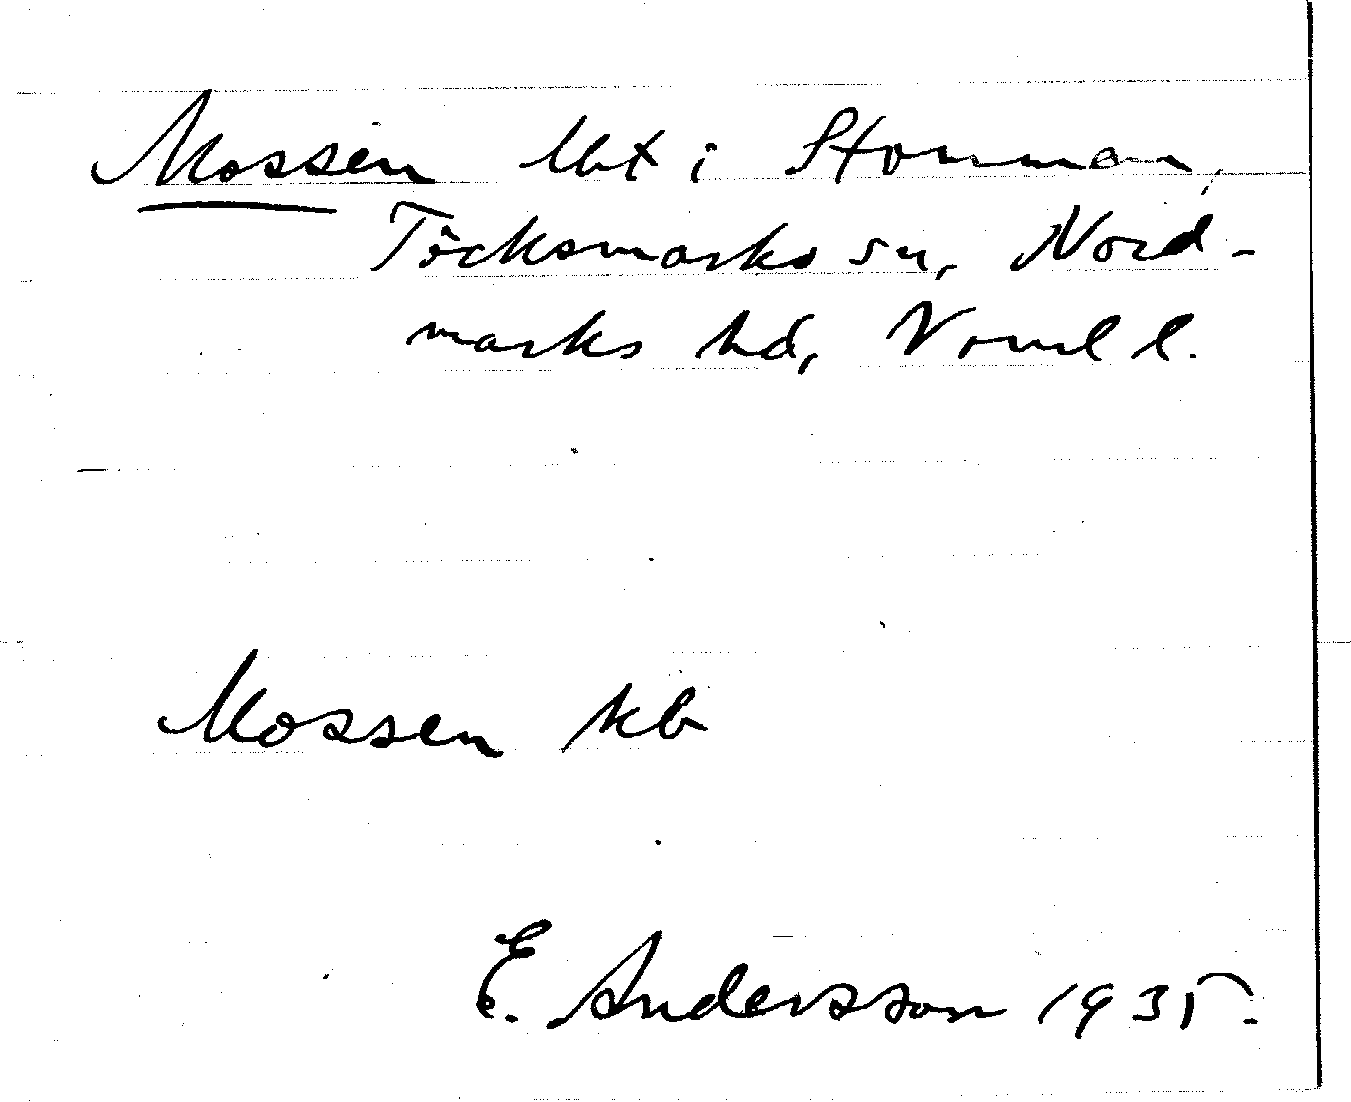 Mossen lht i Stommen,
Töcksmarks sn, Nord-
marks hd, Värml l.
Mossen kb
E. Andersson 1935.